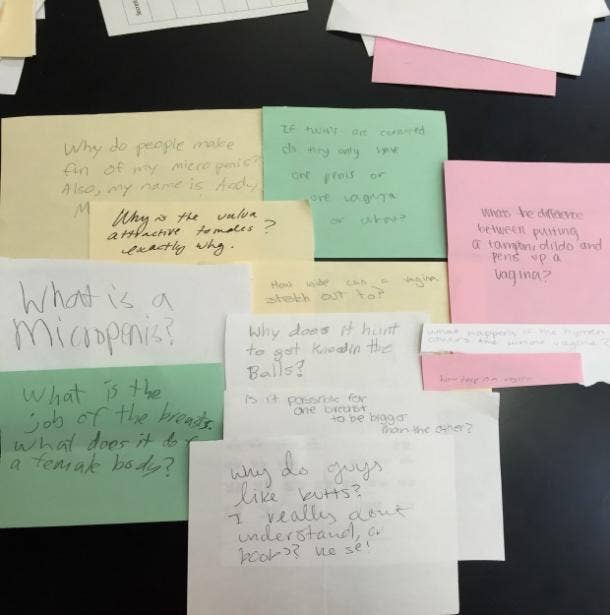 Why do people make
fun of my micropenis?
Also, my name is Andy
M
If twins are connected
do they only have
one penis or
one vagina
or whom?
Why is the vulva
attractive to males ?
exactly why.
whats the difference
between putting
a tampon, dildo and
penis up a
vagina?
How wide can a vagina
stretch out to?
What is a
Micropenis?
Why does it hurt
to get kneed in the
Balls?
what happens if the hymen
covers the whole vagina?
What is the
job of the breasts.
What does it do
a female body?
Is it possible for
one breast
to be bigger
than the other?
Why do guys
like butts?
I really dont
understand, or
boobs?